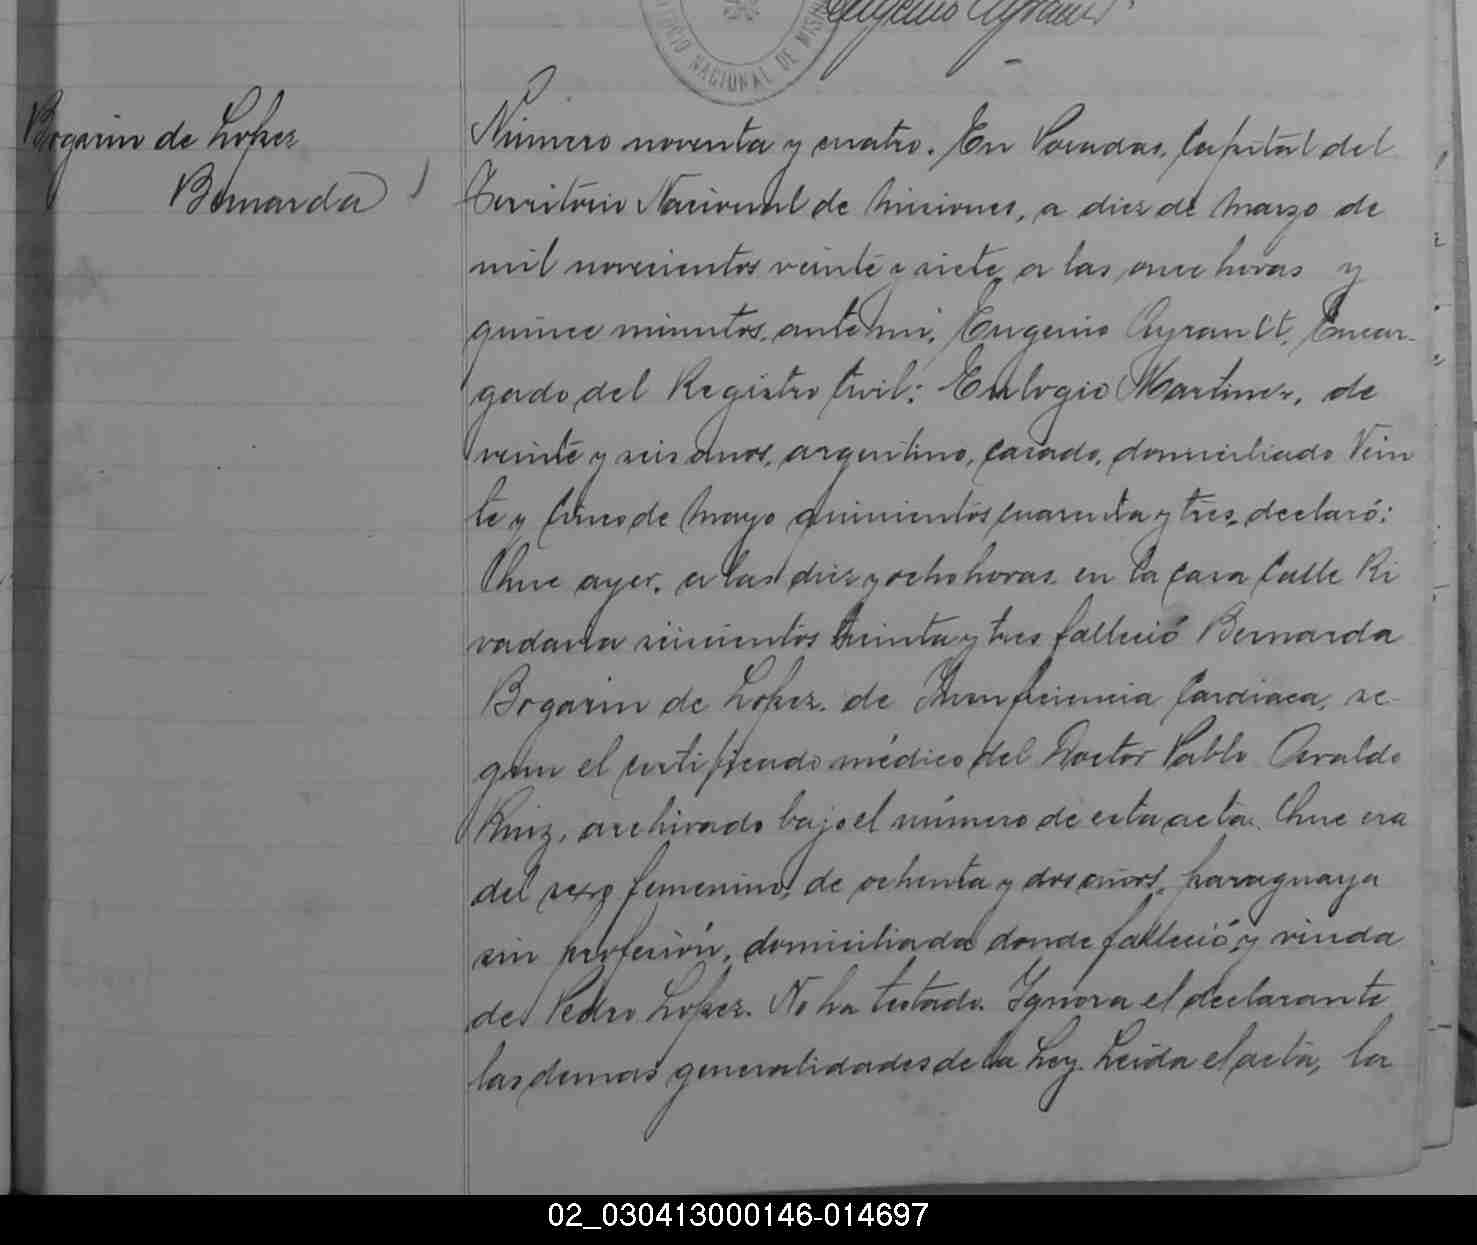 Eugenio Ayrault
OFICIO NACIONAL DE MISIN
Bogarin de Lopez
Bernarda
Número noventa y cuatro. En Posadas, Capital del
Territorio Nacional de Misiones, a diez de Marzo de
mil novecientos veinte y siete a las once horas y
quince minutos, ante mi, Eugenio Ayrault, Encar-
gado del Registro Civil: Eulogio Martinez, de
veinte y seis años, argentino, casado, domiciliado Vein
te y Cinco de Mayo quinientos cuarenta y tres, declaró:
Que ayer, a las diez y ocho horas en la casa Calle Ri
vadavia seiscientos treinta y tres falleció Bernarda
Bogarin de Lopez. de Insuficiencia Cardiaca, se-
gun el certificado médico del Doctor Pablo Osvaldo
Ruiz, archivado bajo el número de esta acta. Que era
del sexo femenino, de ochenta y dos años, paraguaya
sin profesión, domiciliada donde falleció y viuda
de Pedro Lopez. No ha testado. Ignora el declarante
las demas generalidades de la Ley. Leida el acta, la
02_030413000146-014697